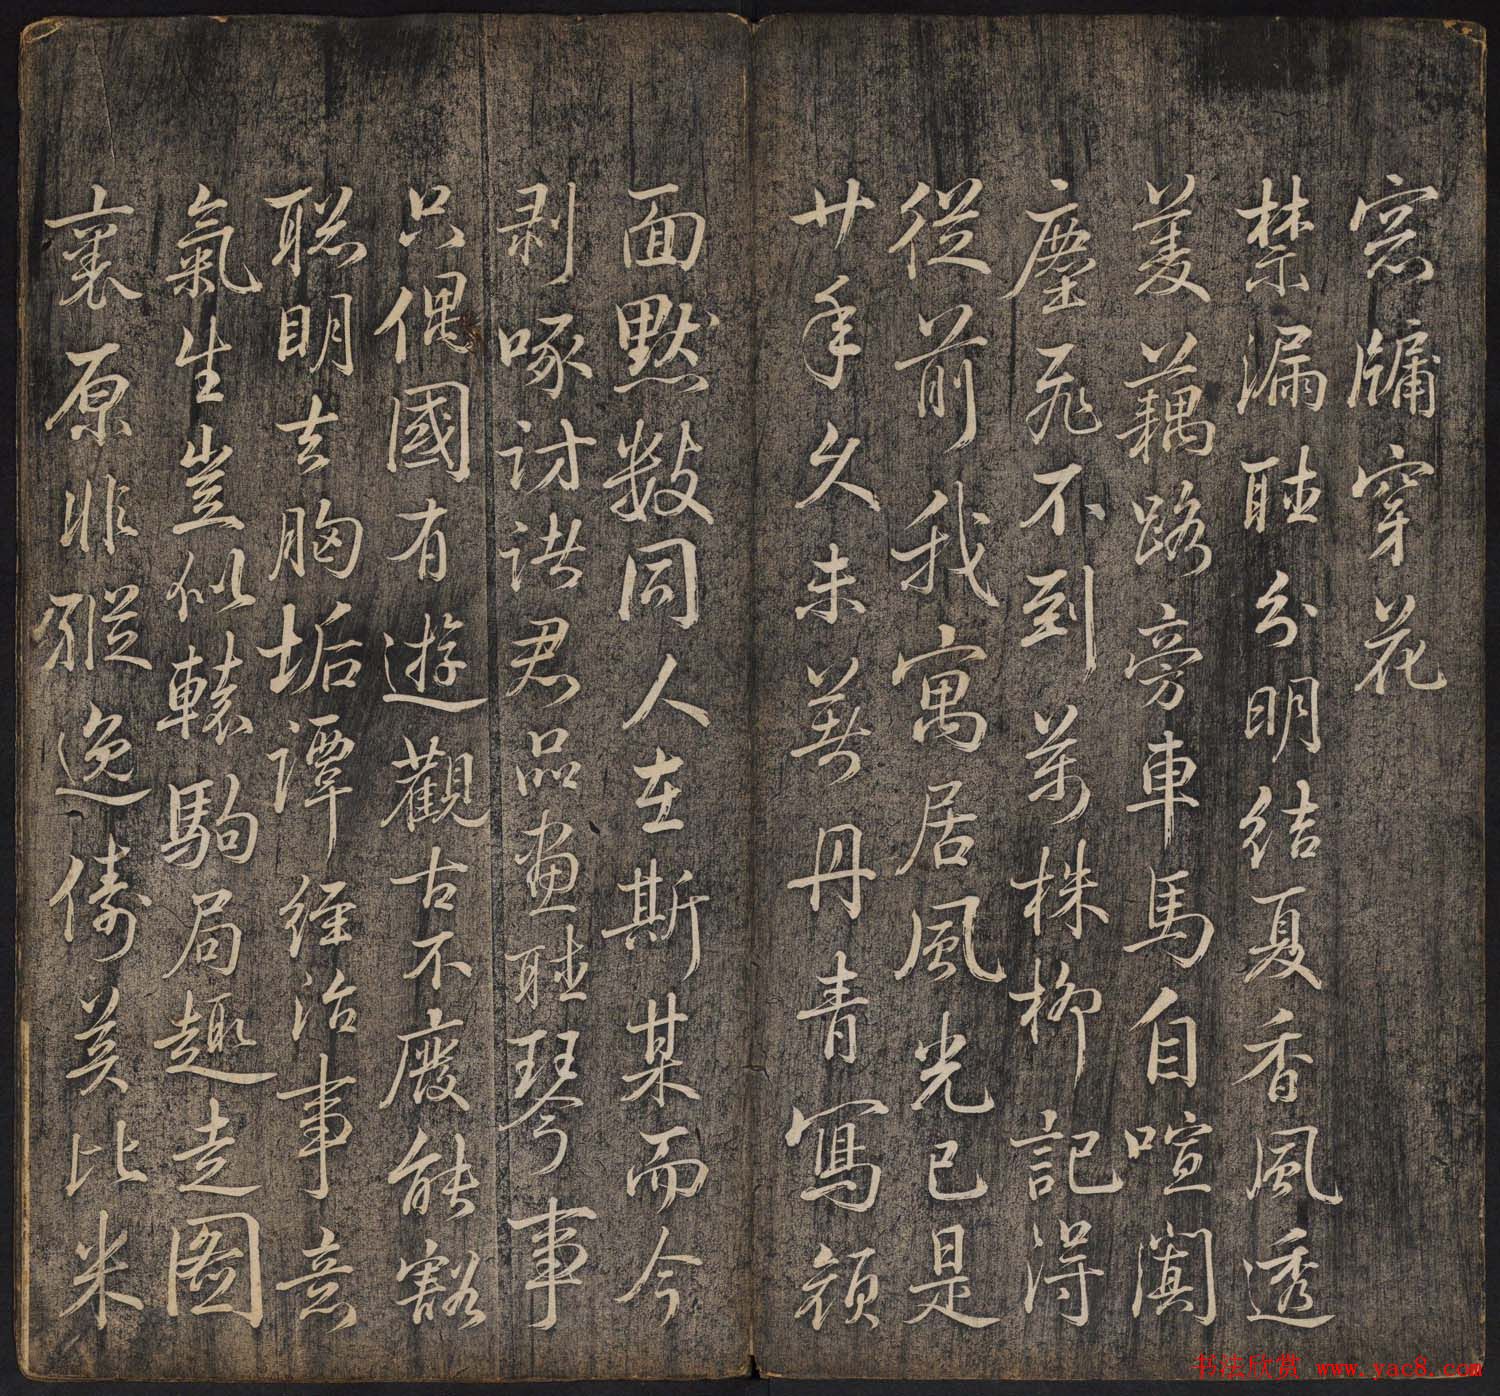 窓牖穿花
禁漏聽分明結夏香風透
芰藕路旁車馬自喧闐
塵飛不到萬株柳記得
從前我寓居風光已是
廿年久未募丹青寫
面默數同人在斯某而今
剥啄討論君品畫聽琴事
只偶國有遊觀古不廢能豁
聰明去胸垢譚經治事意
氣生豈似轅駒局趣走圖
裏原非縱逸儔莫比米
书法欣赏 www.yac8.com